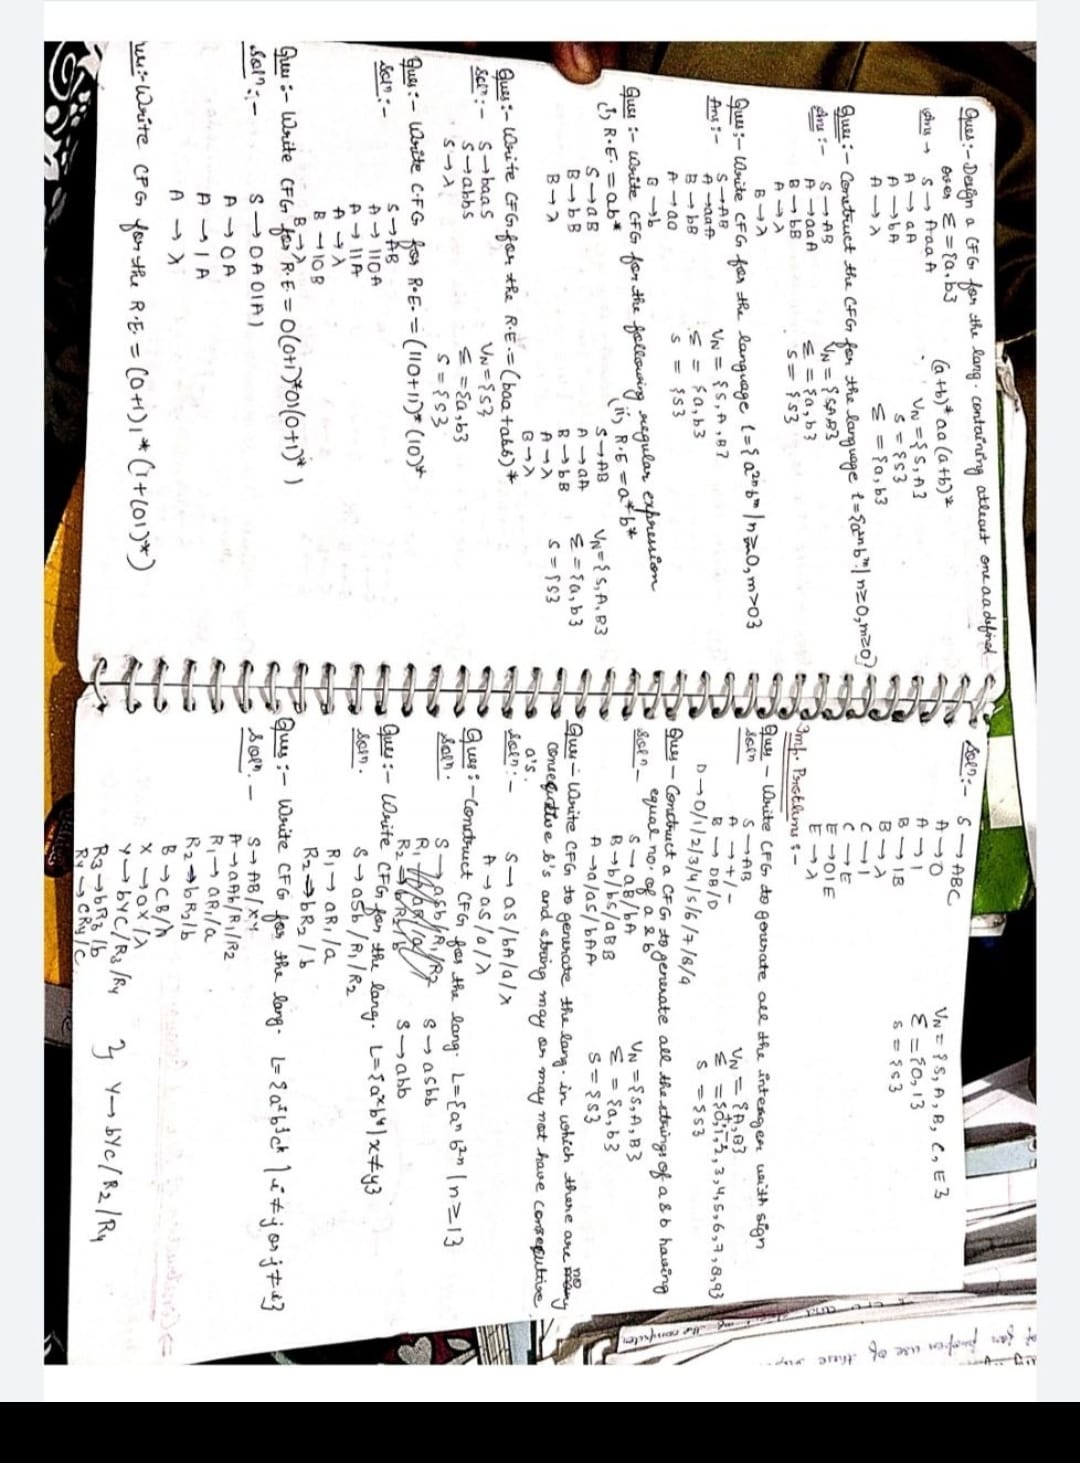 Ques:- Design a CFG for the lang. containing atleast one aa defined
over Σ = {a, b}
(a+b)* aa (a+b)*
Ans → S → AaaA
A → aA
A → bA
A → λ
VN = {S, A}
S = {S}
Σ = {a, b}
Ques:- Construct the CFG for the language L={a²ⁿ bᵐ | n≥0, m≥0}
Ans:- S → AB
A → aaA
B → bB
A → λ
B → λ
VN = {S,A,B}
Σ = {a, b}
S = {S}
Ques:- Write CFG for the language L={a²ⁿ bᵐ | n≥0, m>0}
Ans:- S → AB
A → aaA
B → bB
A → aa
B → b
VN = {S, A, B}
Σ = {a, b}
S = {S}
Ques:- Write CFG for the following regular expression
(i) R.E. = ab*
S → aB
B → bB
B → λ
(ii) R.E = a*b*
S → AB
A → aA
B → bB
A → λ
B → λ
VN = {S, A, B}
Σ = {a, b}
S = {S}
Ques:- Write CFG for the R.E. = (baa+abb)*
Solⁿ:- S → baaS
S → abbS
S → λ
VN = {S}
Σ = {a, b}
S = {S}
Ques:- Write CFG for R.E. = (110+11)* (10)*
Solⁿ:-
S → AB
A → 110A
A → 11A
A → λ
B → 10B
B → λ
Ques:- Write CFG for R.E = 0(0+1)*01(0+1)* 1
Solⁿ:- S → 0A01A1
A → 0A
A → 1A
A → λ
Ques:- Write CFG for the R.E = (0+1)1*(1+(01)*)
Solⁿ:- S → ABC
A → 0
A → 1
B → 1B
B → λ
C → 1
C → E
E → 01E
E → λ
VN = {S, A, B, C, E}
Σ = {0, 1}
S = {S}
Imp. Problems:-
Ques - Write CFG to genurate all the interger with sign
Solⁿ S → AB
A → +/-
B → DB/D
D → 0/1/2/3/4/5/6/7/8/9
VN = {A, B}
Σ = {0,1,2,3,4,5,6,7,8,9}
S = {S}
Ques - Construct a CFG to generate all the strings of a & b having
equal no. of a & b
Solⁿ - S → aB/bA
B → b/bS/aBB
A → a/aS/bAA
VN = {S, A, B}
Σ = {a, b}
S = {S}
Ques - Write CFG to generate the lang. in which there are no
consequtive b's and string may or may not have consequtive
a's.
Solⁿ:- S → aS/bA/a/λ
A → aS/a/λ
Ques:- Construct CFG for the lang. L={aⁿ b²ⁿ | n≥1}
Solⁿ. S → aSbb
S → abb
Ques:- Write CFG for the lang. L={aˣbʸ | x≠y}
Solⁿ. S → aSb / R₁ / R₂
R₁ → aR₁ / a
R₂ → bR₂ / b
Ques:- Write CFG for the lang. L={aⁱbʲcᵏ | i≠j or j≠i}
Solⁿ. - S → AB/XY
A → aAb/R₁/R₂
R₁ → aR₁/a
R₂ → bR₂/b
B → CB/λ
X → aX/λ
Y → bYc/R₃/R₄
R₃ → bR₃/b
R₄ → CR₄/C
} Y → bYc/R₂/R₄